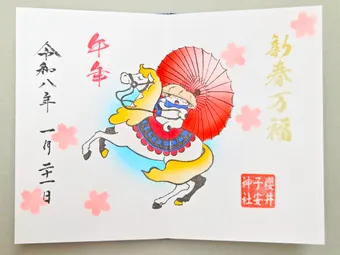 新春万福
午年
令和八年 一月二十一日
櫻井
子安
神社